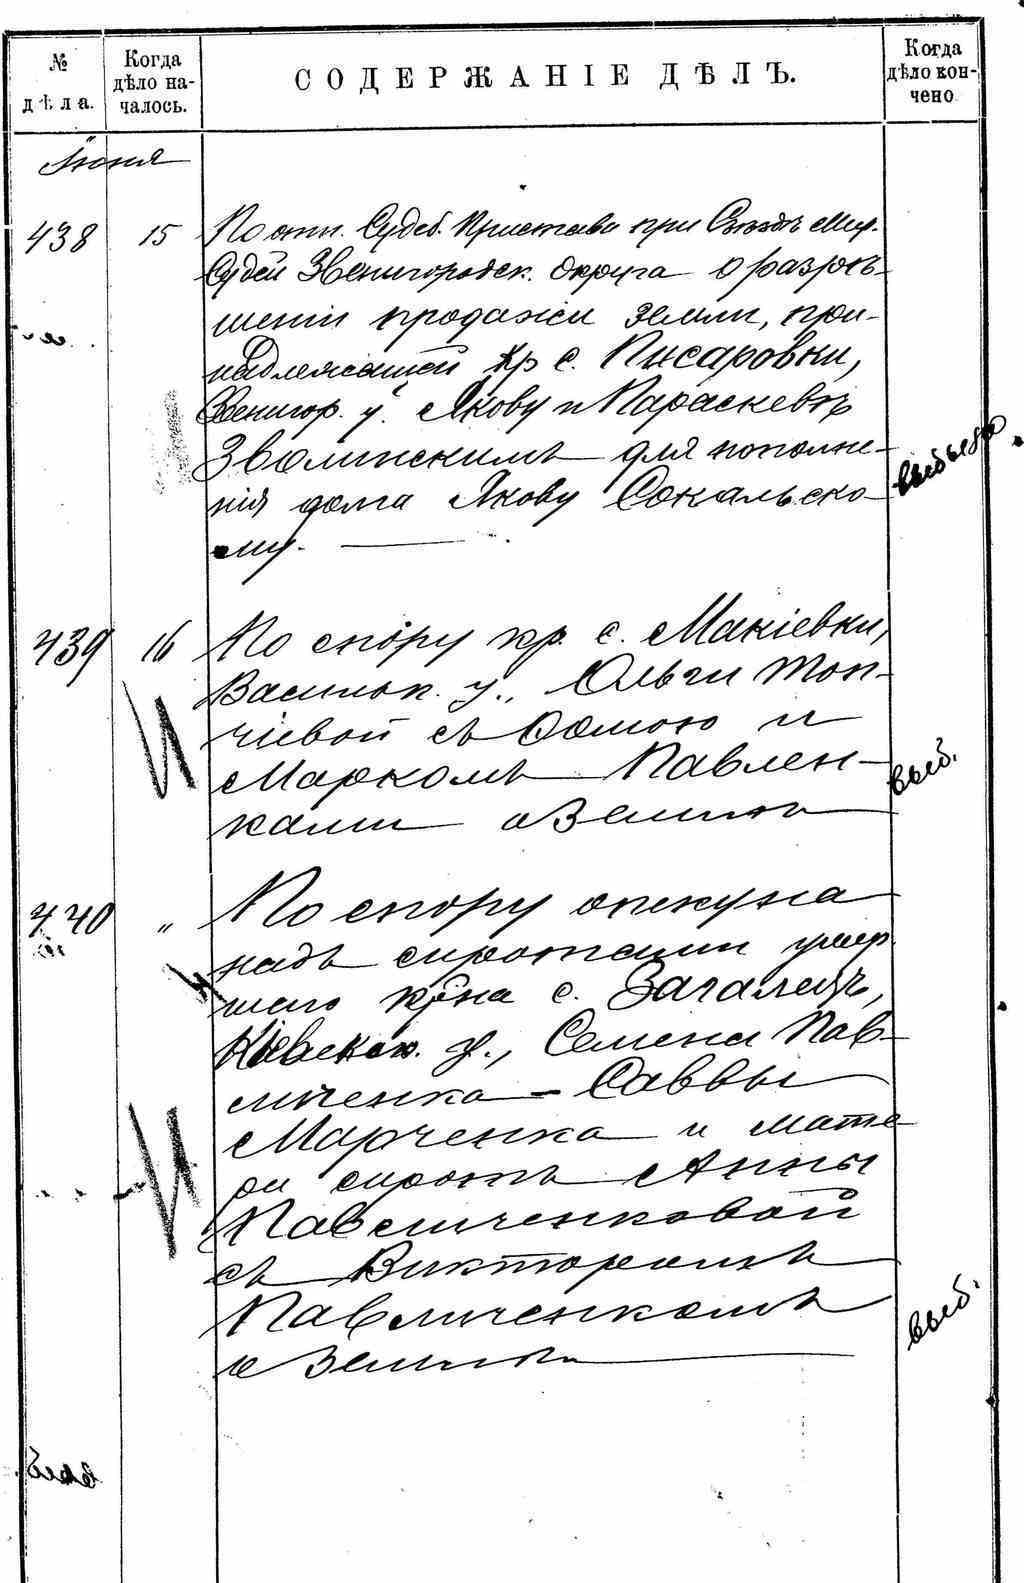 № дѣла.
Когда дѣло началось.
СОДЕРЖАНІЕ ДѢЛЪ.
Когда дѣло кончено
Іюня
438 15 По отн. Судеб. Пристава при Съѣздѣ Мир.
Судей Звенигородск. округа о разрѣ-
шеніи продажи земли, при-
надлежащей кр с. Писаровки,
Звенигор. у. Якову и Параскевѣ
Зволинскимъ для пополне-
нія долга Якову Сокальско-
му.
439 16 По спору кр. с. Макіевки,
Васильк. у., Ольги Топ-
чіевой съ Ѳомою и
Маркомъ Павлен-
ками о землѣ
выб.
440 " По спору опекуна
надъ сиротами умер
шаго кр̃на с. Загалецъ,
Кіевск. у., Семена Пав-
личенка - Саввы
Марченка и мате
ри сиротъ Анны
Павличенковой
съ Викторомъ
Павличенкомъ
о землѣ
выб.